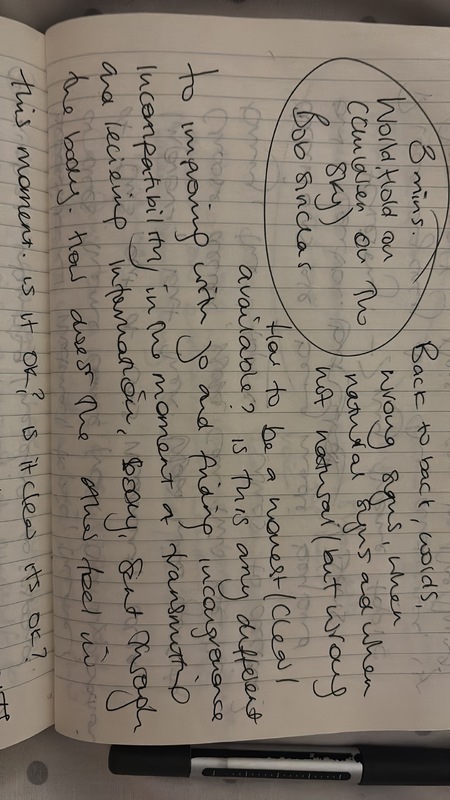 8 mins.
World, Hold on
(children of the
sky)
Bob Sinclar
Back to back, worlds,
wrong signs, when
natural signs and when
not natural (but wrong
How to be a honest/clear/
available? is this any different
to improving with Jo and finding incongruence
Incompatibility in the moment of transmitting
and recieving information, sent through
the body. How does the other feel in
this moment. is it OK? is it clear its OK?